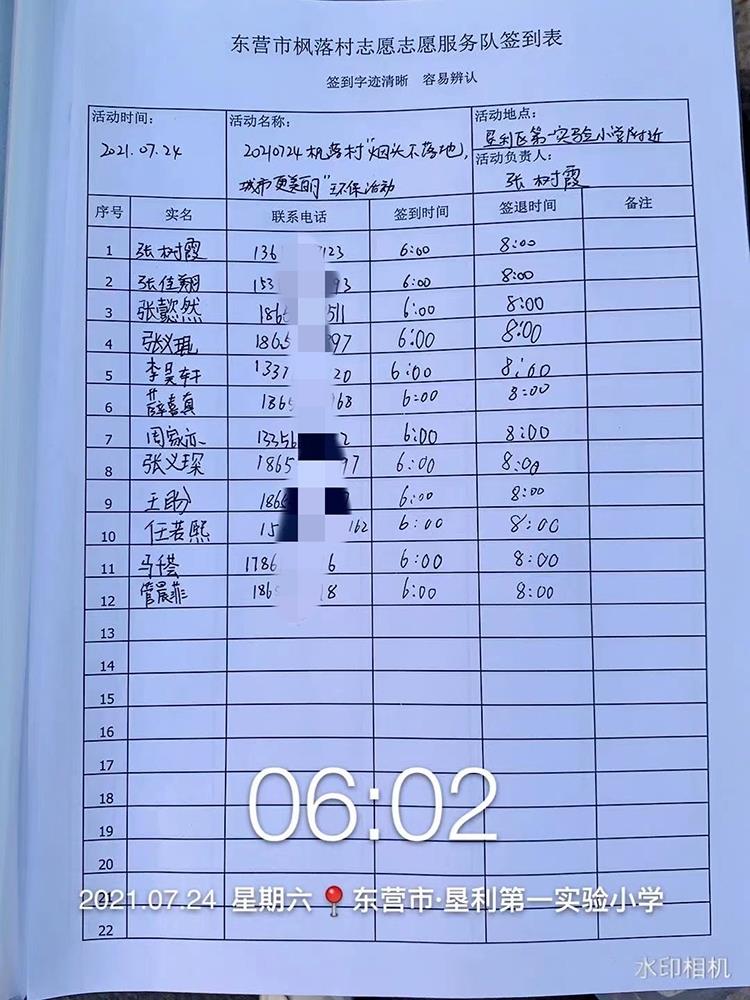 东营市枫落村志愿志愿服务队签到表
签到字迹清晰 容易辨认
活动时间: 活动名称: 活动地点:
2021.07.24 20210724枫落村"烟头不落地, 垦利区第一实验小学附近
城市更美丽"环保活动 活动负责人: 张树霞
序号 实名 联系电话 签到时间 签退时间 备注
1 张树霞 136 123 6:00 8:00
2 张佳翔 153 93 6:00 8:00
3 张懿然 1865 511 6:00 8:00
4 张义琨 1865 97 6:00 8:00
5 李昊轩 1337 20 6:00 8:00
6 薛喜真 1865 168 6:00 8:00
7 周家亦 13356 2 6:00 8:00
8 张义琛 1865 97 6:00 8:00
9 王盼 186 6:00 8:00
10 任若熙 15 162 6:00 8:00
11 马千荟 1786 6 6:00 8:00
12 管晨菲 186 18 6:00 8:00
13
14
15
16
17
18
19
20
21
22
06:02
2021.07.24 星期六 东营市·垦利第一实验小学
水印相机